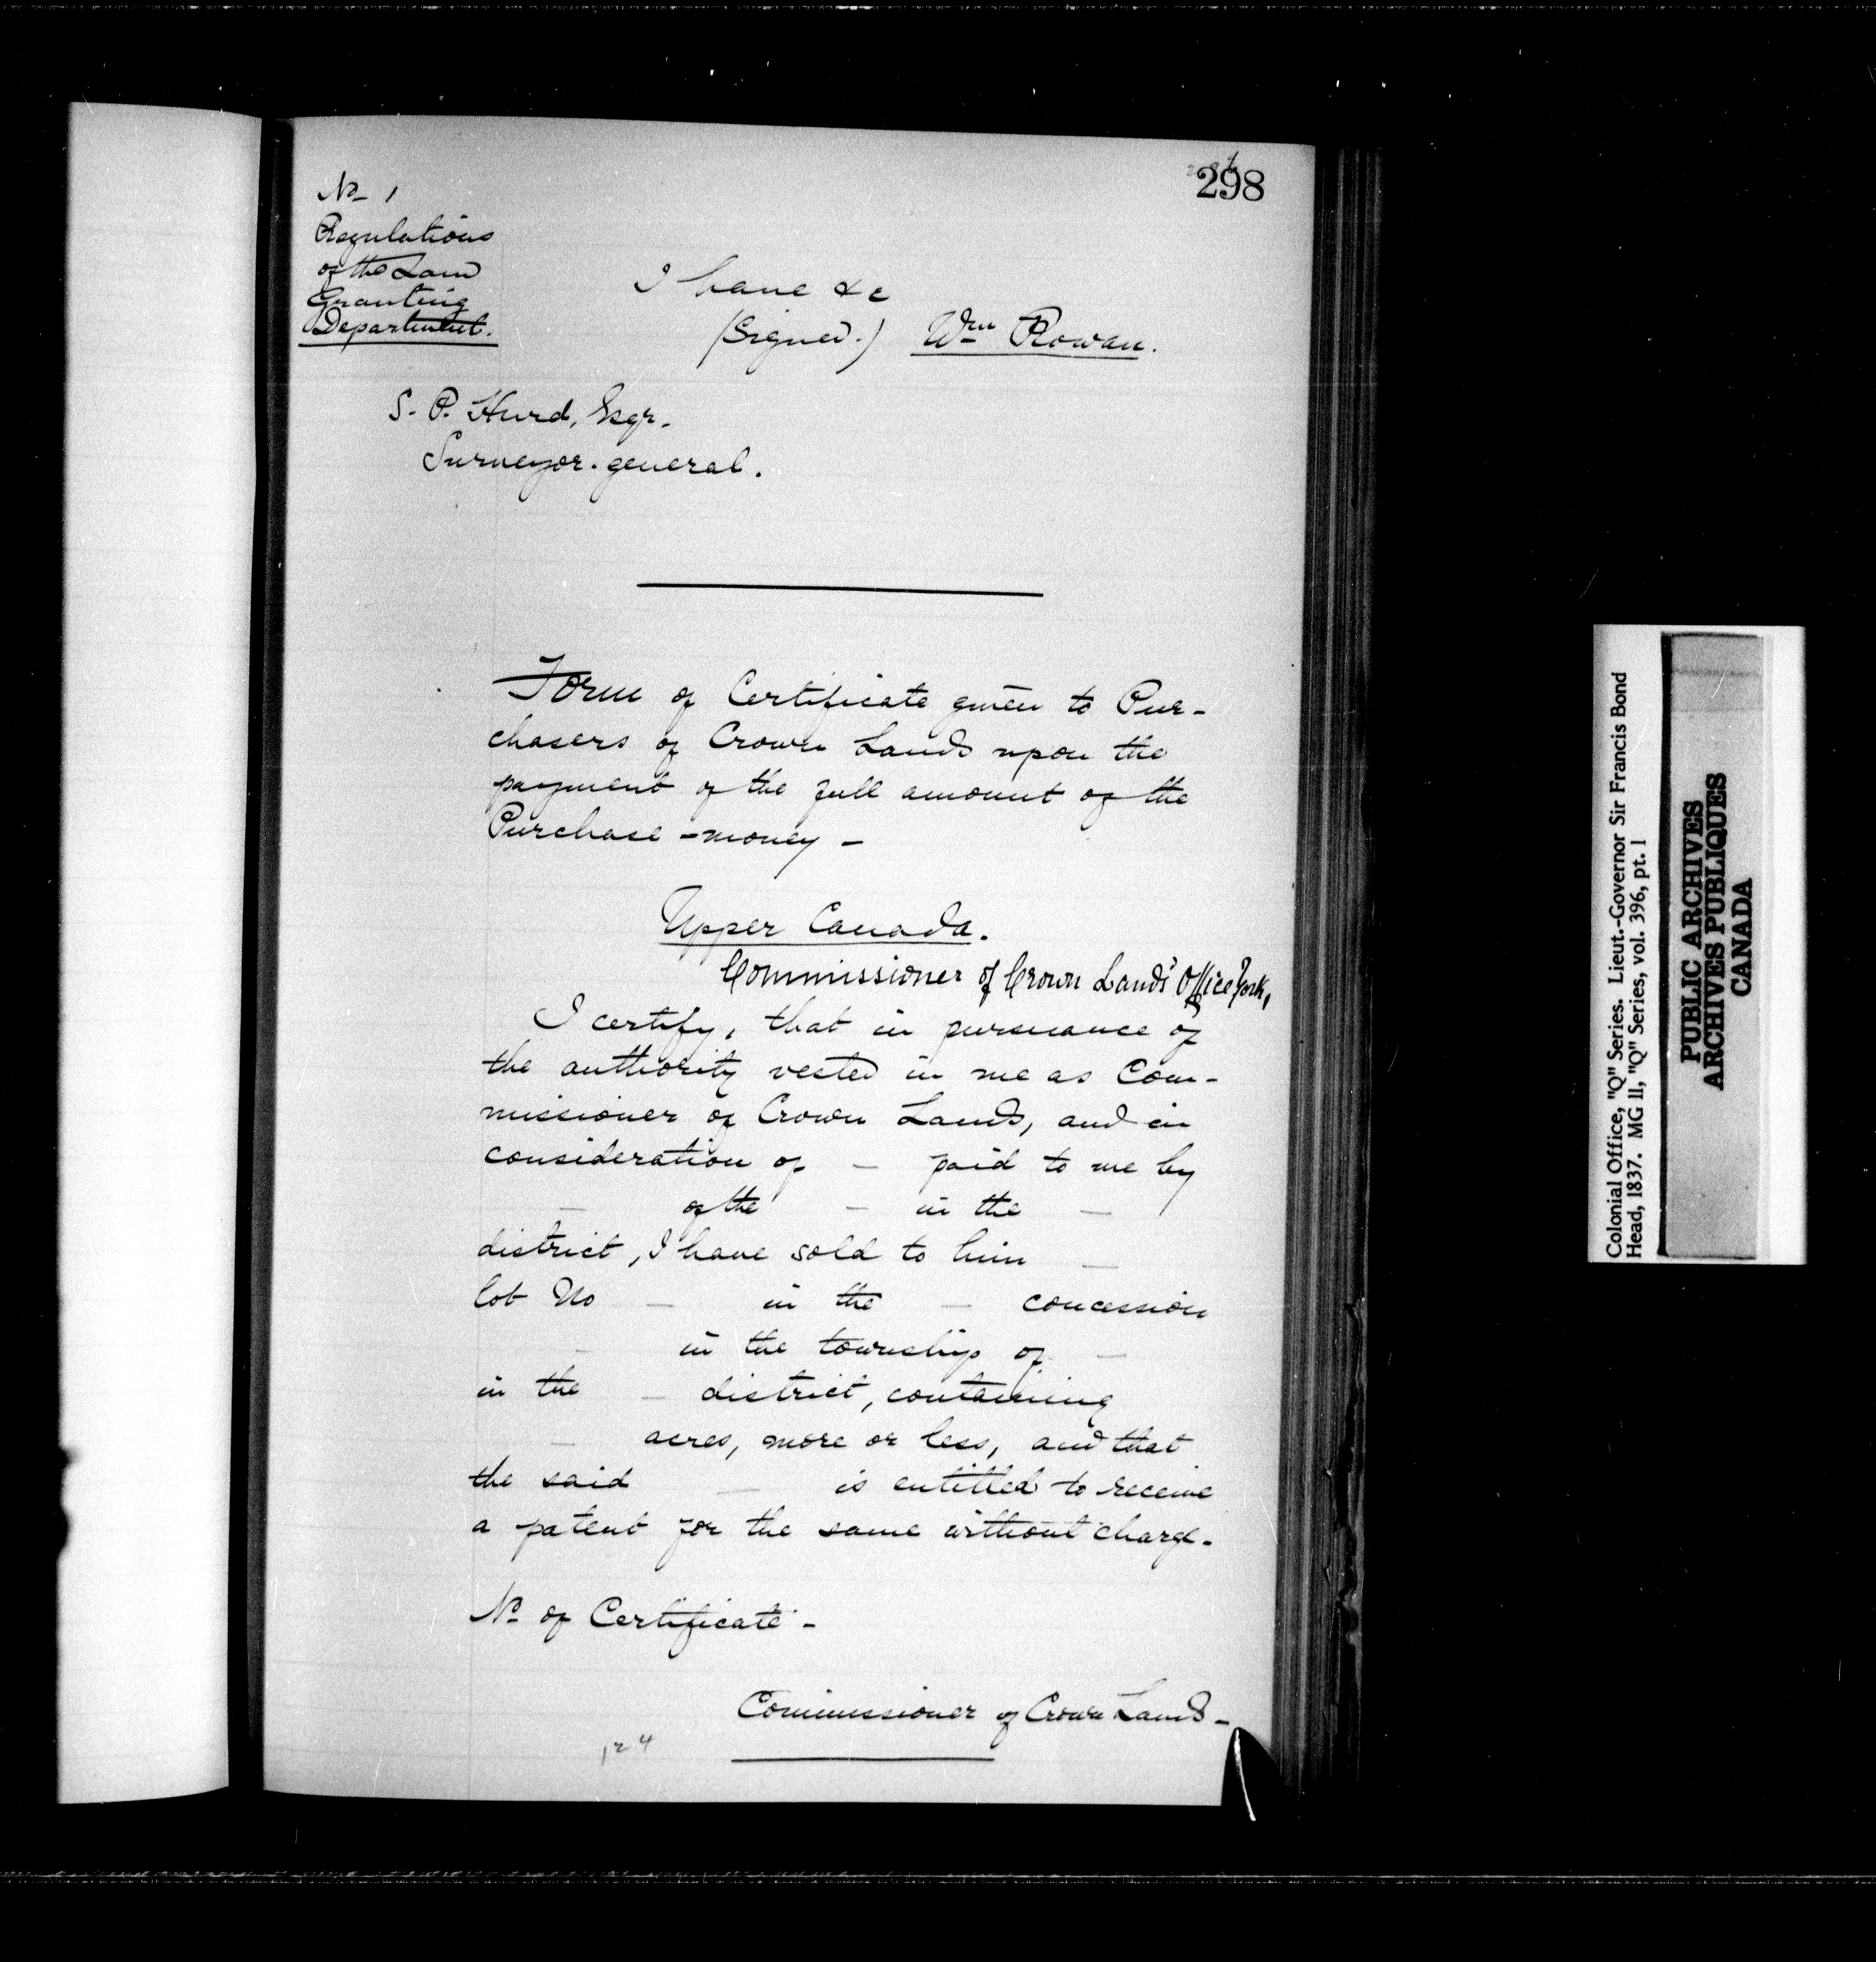 298
No 1
Regulations
of the Land
Granting
Department.
I have &c
(Signed.) Wm Rowan.
S. P. Hurd, Esqr.
Surveyor-general.
Form of Certificate given to Pur-
chasers of Crown Lands upon the
payment of the full amount of the
Purchase-money -
Upper Canada.
Commissioner of Crown Lands' Office York,
I certify, that in pursuance of
the authority vested in me as Com-
missioner of Crown Lands, and in
consideration of — paid to me by
— of the — in the —
district, I have sold to him —
lot No — in the — concession
— in the township of —
in the — district, containing
— acres, more or less, and that
the said — is entitled to receive
a patent for the same without charge.
No of Certificate -
Commissioner of Crown Lands -
124
Colonial Office, "Q" Series. Lieut.-Governor Sir Francis Bond
Head, 1837. MG 11, "Q" Series, vol. 396, pt. 1
PUBLIC ARCHIVES
ARCHIVES PUBLIQUES
CANADA